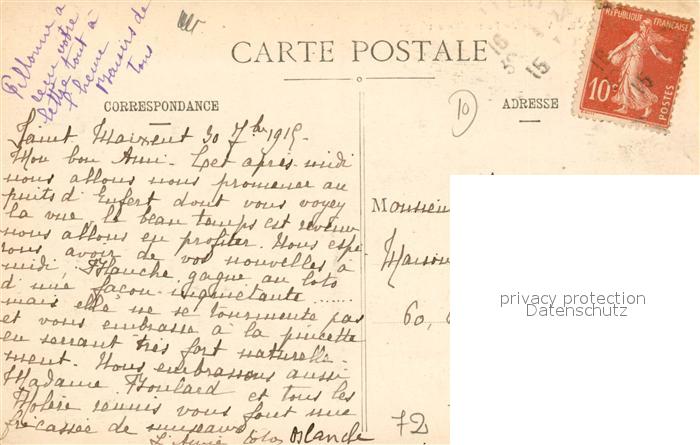 Fillonne a
reçu votre
lettre tout à
l'heure
Baisers de
tous
CARTE POSTALE
CORRESPONDANCE
ADRESSE
REPUBLIQUE FRANÇAISE
10c
POSTES
16
15
15
10
Saint Maixent 30 7bre 1915.
Mon bon Ami. Cet après-midi
nous allons nous promener au
puits d'Enfert dont vous voyez
la vue, le beau temps est revenu
nous allons en profiter. Nous espé
rons avoir de vos nouvelles à
midi, Blanche gagne au loto
d'une façon inquiétante ......
mais elle ne se tourmente pas
et vous embrasse à la pincette
en serrant très fort naturelle-
ment. Nous embrassons aussi
Madame Boulard et tous les
Molère réunis vous font une
fricassée de museaux
L'Amie Blanche
Monsieur
Maison
60,
72
privacy protection
Datenschutz